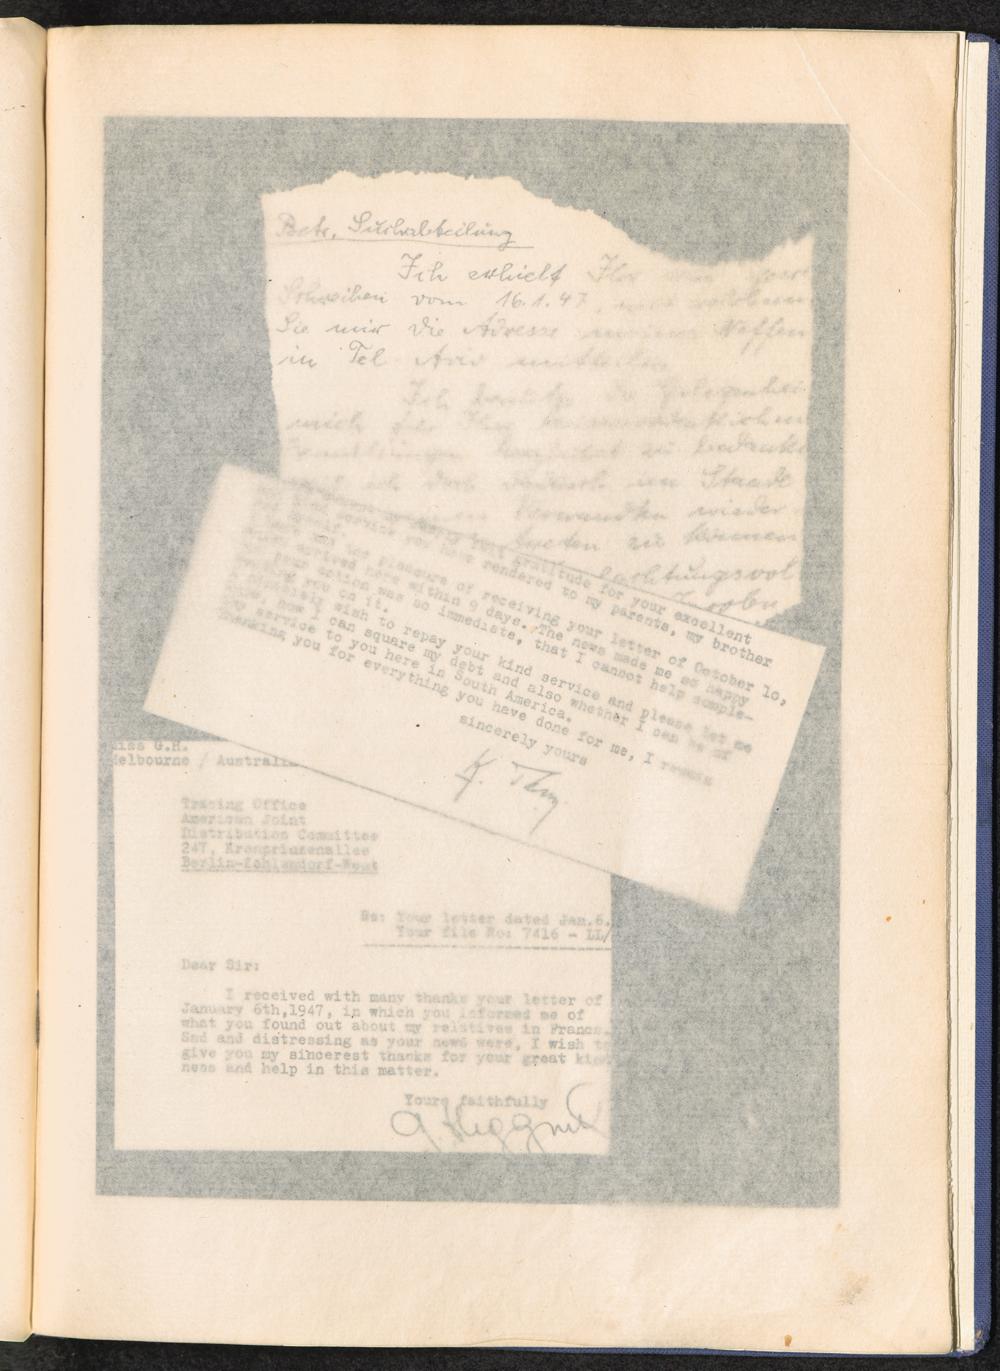 Betr. Suchabteilung
Ich erhielt Ihr
Schreiben vom 16.1.47, mit welchem
Sie mir die Adresse meines Neffen
in Tel Aviv mitteilen
Ich benutze die Gelegenhei
mich für Ihre
Bemühungen herzlichst zu bedanke
ich doch dadurch im Stande
Verwandten wieder
treten zu können
achtungsvol
gratitude for your excellent
and kind service you have rendered to my parents, my brother
and myself.
I had the pleasure of receiving your letter of October 10,
which arrived here within 9 days. The news made me so happy
your action was so immediate, that I cannot help comple-
menting you on it.
I sincerely wish to repay your kind service and please let me
know, how I can square my debt and also whether I can be of
any service to you here in South America.
Thanking you for everything you have done for me, I remain
sincerely yours
Miss G.H.
Melbourne / Australia
Tracing Office
American Joint
Distribution Committee
247, Kronprinzenallee
Berlin-Zehlendorf-West
Re: Your letter dated Jan.6.
Your file No: 7416 - LL/
Dear Sir:
I received with many thanks your letter of
January 6th,1947, in which you informed me of
what you found out about my relatives in France.
Sad and distressing as your news were, I wish to
give you my sincerest thanks for your great kind
ness and help in this matter.
Yours faithfully